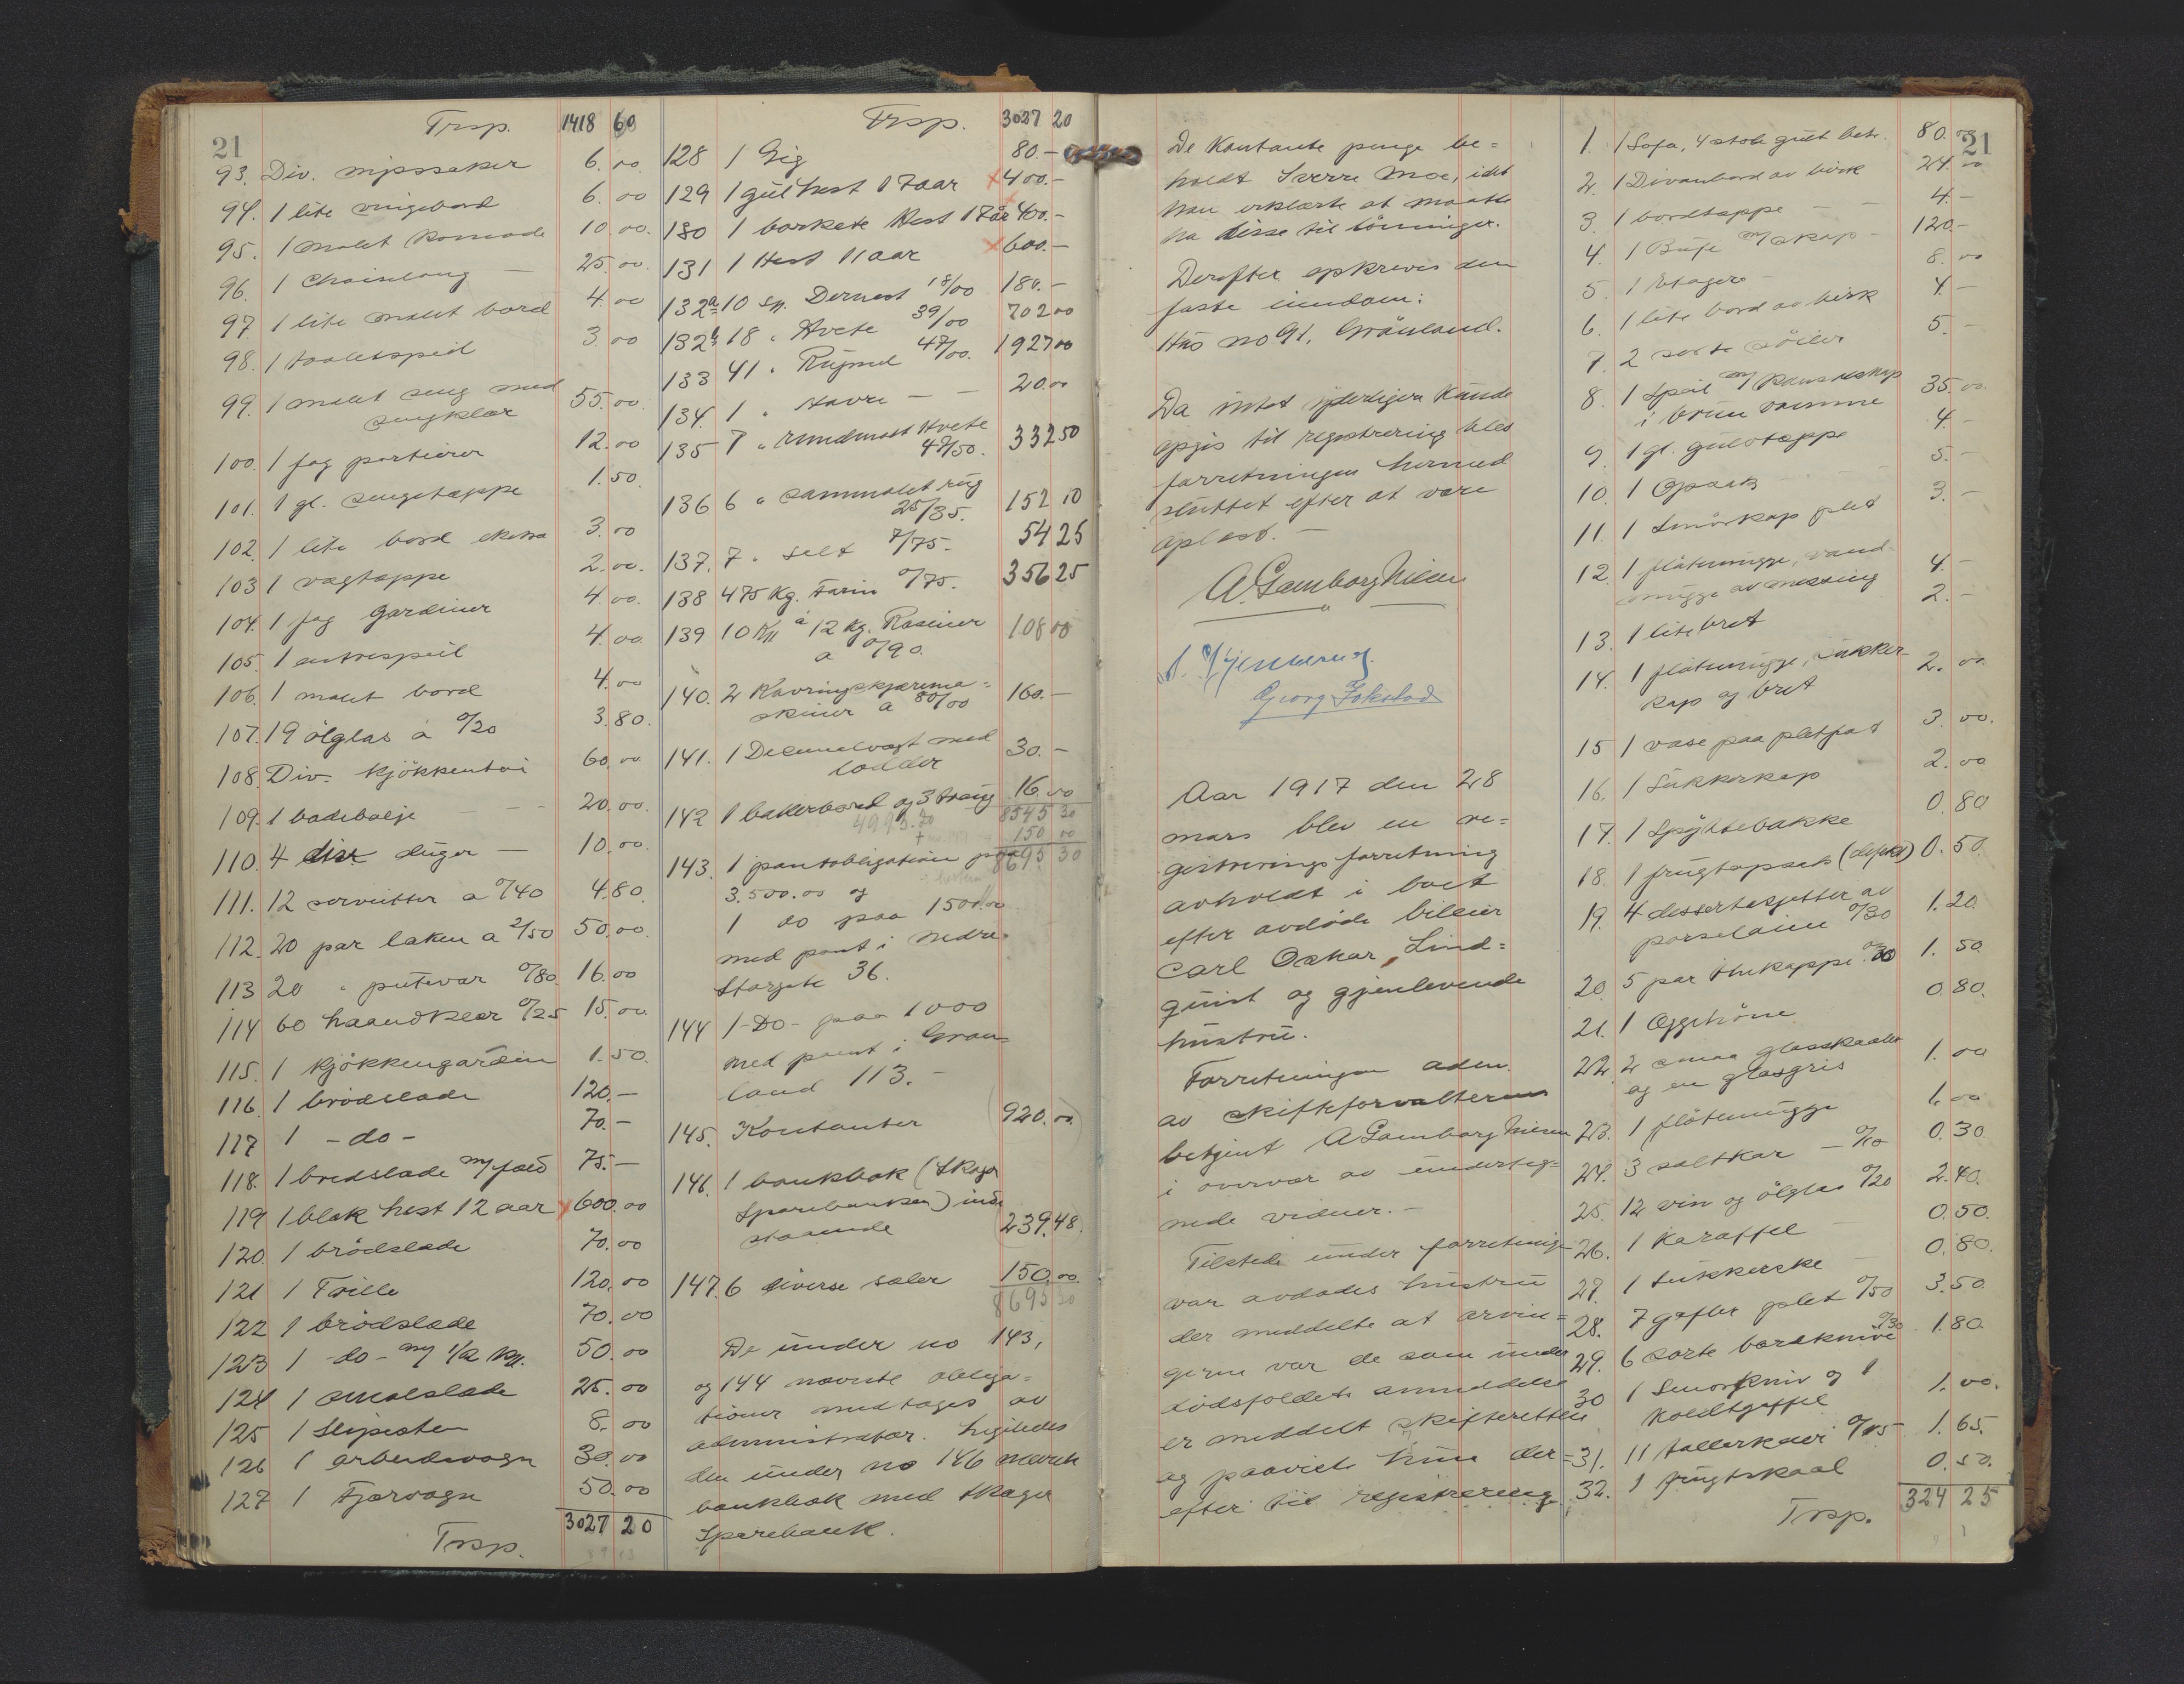 21
Trsp. 1418 60
93. Div. nipssaker 6.00
94. 1 lite vingebord 6.00
95. 1 malet Komode 10.00.
96. 1 Chaiselong — 25.00
97. 1 lite malet bord 4.00
98. 1 toaletspeil 3.00
99. 1 malet seng med
sengklær 55.00
100. 1 fag portierer 12.00
101. 1 gl. sengeteppe 1.50
102. 1 lite bord 3.00
103 1 vægtæppe 2.00.
104. 1 fag gardiner 4.00.
105. 1 entrespeil 4.00
106. 1 malet bord 4.00
107. 19 ölglas á 0/20 3.80.
108. Div. kjökkentöi 60.00
109. 1 badebalje - - - 20.00.
110. 4 div duger — 10.00.
111. 12 servietter a 0/40 4.80.
112. 20 par laken a 2/50 50.00.
113 20 " putevar 0/80. 16.00
114 60 haandklær 0/25 15.00
115. 1 kjökkengardin 1.50.
116. 1 brödslæde 120.—
117 1 -do- 70.—
118. 1 bredslæde m/ fæld 75.—
119 1 blak hest 12 aar x 600.00
120. 1 brödslæde 70.00
121 1 Trille 120.00
122 1 brödslæde 70.00
123 1 -do- m/ 1/2 kp. 50.00
124 1 smalslæde 25.00
125 1 Slipesten 8.00
126 1 arbeidsvogn 30.00
127 1 Fjærvogn 50.00
Trsp. 3027 20
Trsp. 3027 20
128 1 Gig 80.—
129 1 gul hest 17 aar x 400.—
130 1 borkete Hest 17 år 400.—
131 1 Hest 11 aar x 600.—
132a 10 sp. 18/00 180.—
132b 18 " Hvete 39/00 702 00
133 41 " Rugmel 47/00. 1927 00
134. 1 " Havre — — 20.00
135 7 " rundmalt Hvete
47/50. 332 50
136 6 " sammalet rug
25/35. 152 10
137. 7 " salt 7/75. 54 25
138 475 kg. Farin 0/75. 356 25
139 10 Ks á 12 kg. Rosiner
a 0/90. 108 00
140. 2 Kavringskjærema=
skiner a 80/00 160.—
141. 1 Decimalvægt med
lodder 30.—
142 1 bakerbord og 3 traug 16.00
4995.70 8545 30
150 00
8695 30
143. 1 pantobligation paa
3.500.00 og
1 do paa 1500.00
med pant i Nedre
Storgate 36.
144 1 -Do- paa 1000
med pant i Grøn
land 113.—
145. Kontanter (920.00)
146. 1 bankbok (Skoger
Sparebanken) inde
staaende (239.48.
147. 6 diverse sæler 150.00
8695 30
De under no 143,
og 144 nævnte obliga=
tioner medtages av
administrator. Ligeledes
den under no 146 nævnte
bankbok med Skoger
Sparebank.
De Kontante penge be=
holdt Sverre Moe, idet
han erklærte at maatte
ha disse til lönninger.
Derefter opkreves den
faste eiendom:
Hus no 91. Grönland.
Da intet yderligere kunde
opgis til registrering blev
forretningen hermed
sluttet efter at være
oplæst. —
A. Gamborg Nilsen
Georg Fokstad
Aar 1917 den 28
mars blev en re=
gistreringsforretning
avholdt i boet
efter avdöde bileier
Carl Oskar Lind=
quist og gjenlevende
hustru.
Forretningen adm.
av skifteforvalterens
betjent A Gamborg Nilsen
i overvær av underteg=
nede vidner. —
Tilstede under forretning
var avdødes hustru
der meddelte at arvin=
gerne var de som under
dödsfaldets anmeldelse
er meddelt skifteretten
og paaviste hun der=
efter til registrering
21
1. 1 Sofa, 4 stole gult betr. 80.00
2. 1 Divanbord av birk 24.00
3. 1 bordtæppe — — 4.—
4. 1 Bufe m/ skap — 120.—
5. 1 Etagere 8.00
6. 1 lite bord av birk 4.—
7. 2 sorte söiler 5.—
8. 1 Speil m/ Konsolskap
i brun ramme 35.00
9. 1 gl. gulvtæppe 4.—
10. 1 Opsats 5.—
11. 1 Smörkop plet 3.—
12. 1 flötemugge, vand
mugge av messing 4.—
13. 1 lite bret 2.—
14. 1 flötemugge, sukker-
kop og bret 2.00
15 1 vase paa pletfad 3.00.
16. 1 Sukkerkop 2.00
17. 1 Spyttebakke 0.80
18. 1 frugtopsats (defekt) 0.50.
19. 4 dessertasjetter av
porselæin 0/30 1.20
20. 5 par thekopper 0/30 1.50
21. 1 Eggehöne 0.80.
22. 2 smaa glasskaaler
og en glasgris 1.00
23. 1 flötemugge 1.00
24. 3 saltkar — 0/10 0.30
25. 12 vin og ölglas 0/20 2.40.
26. 1 Karaffel 0.50.
27. 1 Sukkerske 0.80.
28. 7 gafler plet 0/50 3.50
29. 6 sorte bordkniver 0/30 1.80
30 1 Smörkniv og 1
Koldtgaffel 1.00.
31. 11 tallerkener 0/15 1.65.
32. 1 frugtskaal 0.50.
Trsp. 324 25